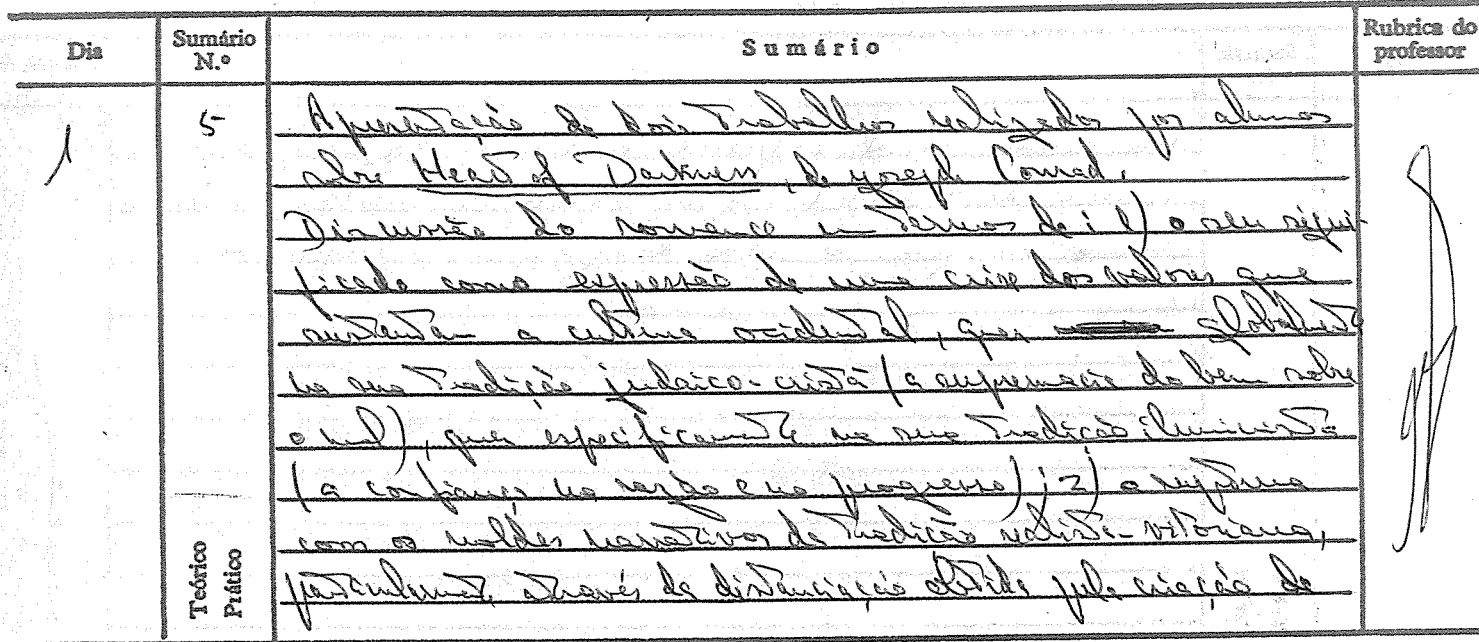 Dia
Sumário N.º
Sumário
Rubrica do professor
1
5
Apresentação de dois trabalhos realizados por alunos
sobre Heart of Darkness, de Joseph Conrad.
Discussão do romance em termos de: 1) o seu signi-
ficado como expressão de uma crise dos valores que
sustentam a cultura ocidental, quer globalmente
na sua tradição judaico-cristã (a supremacia do bem sobre
o mal), quer especificamente na sua tradição iluminista
(a confiança na razão e no progresso); 2) a ruptura
com os moldes narrativos da tradição realista-vitoriana,
particularmente, através da distanciação obtida pela criação de
Teórico
Prático